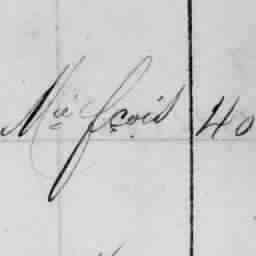 Mie fçois 40